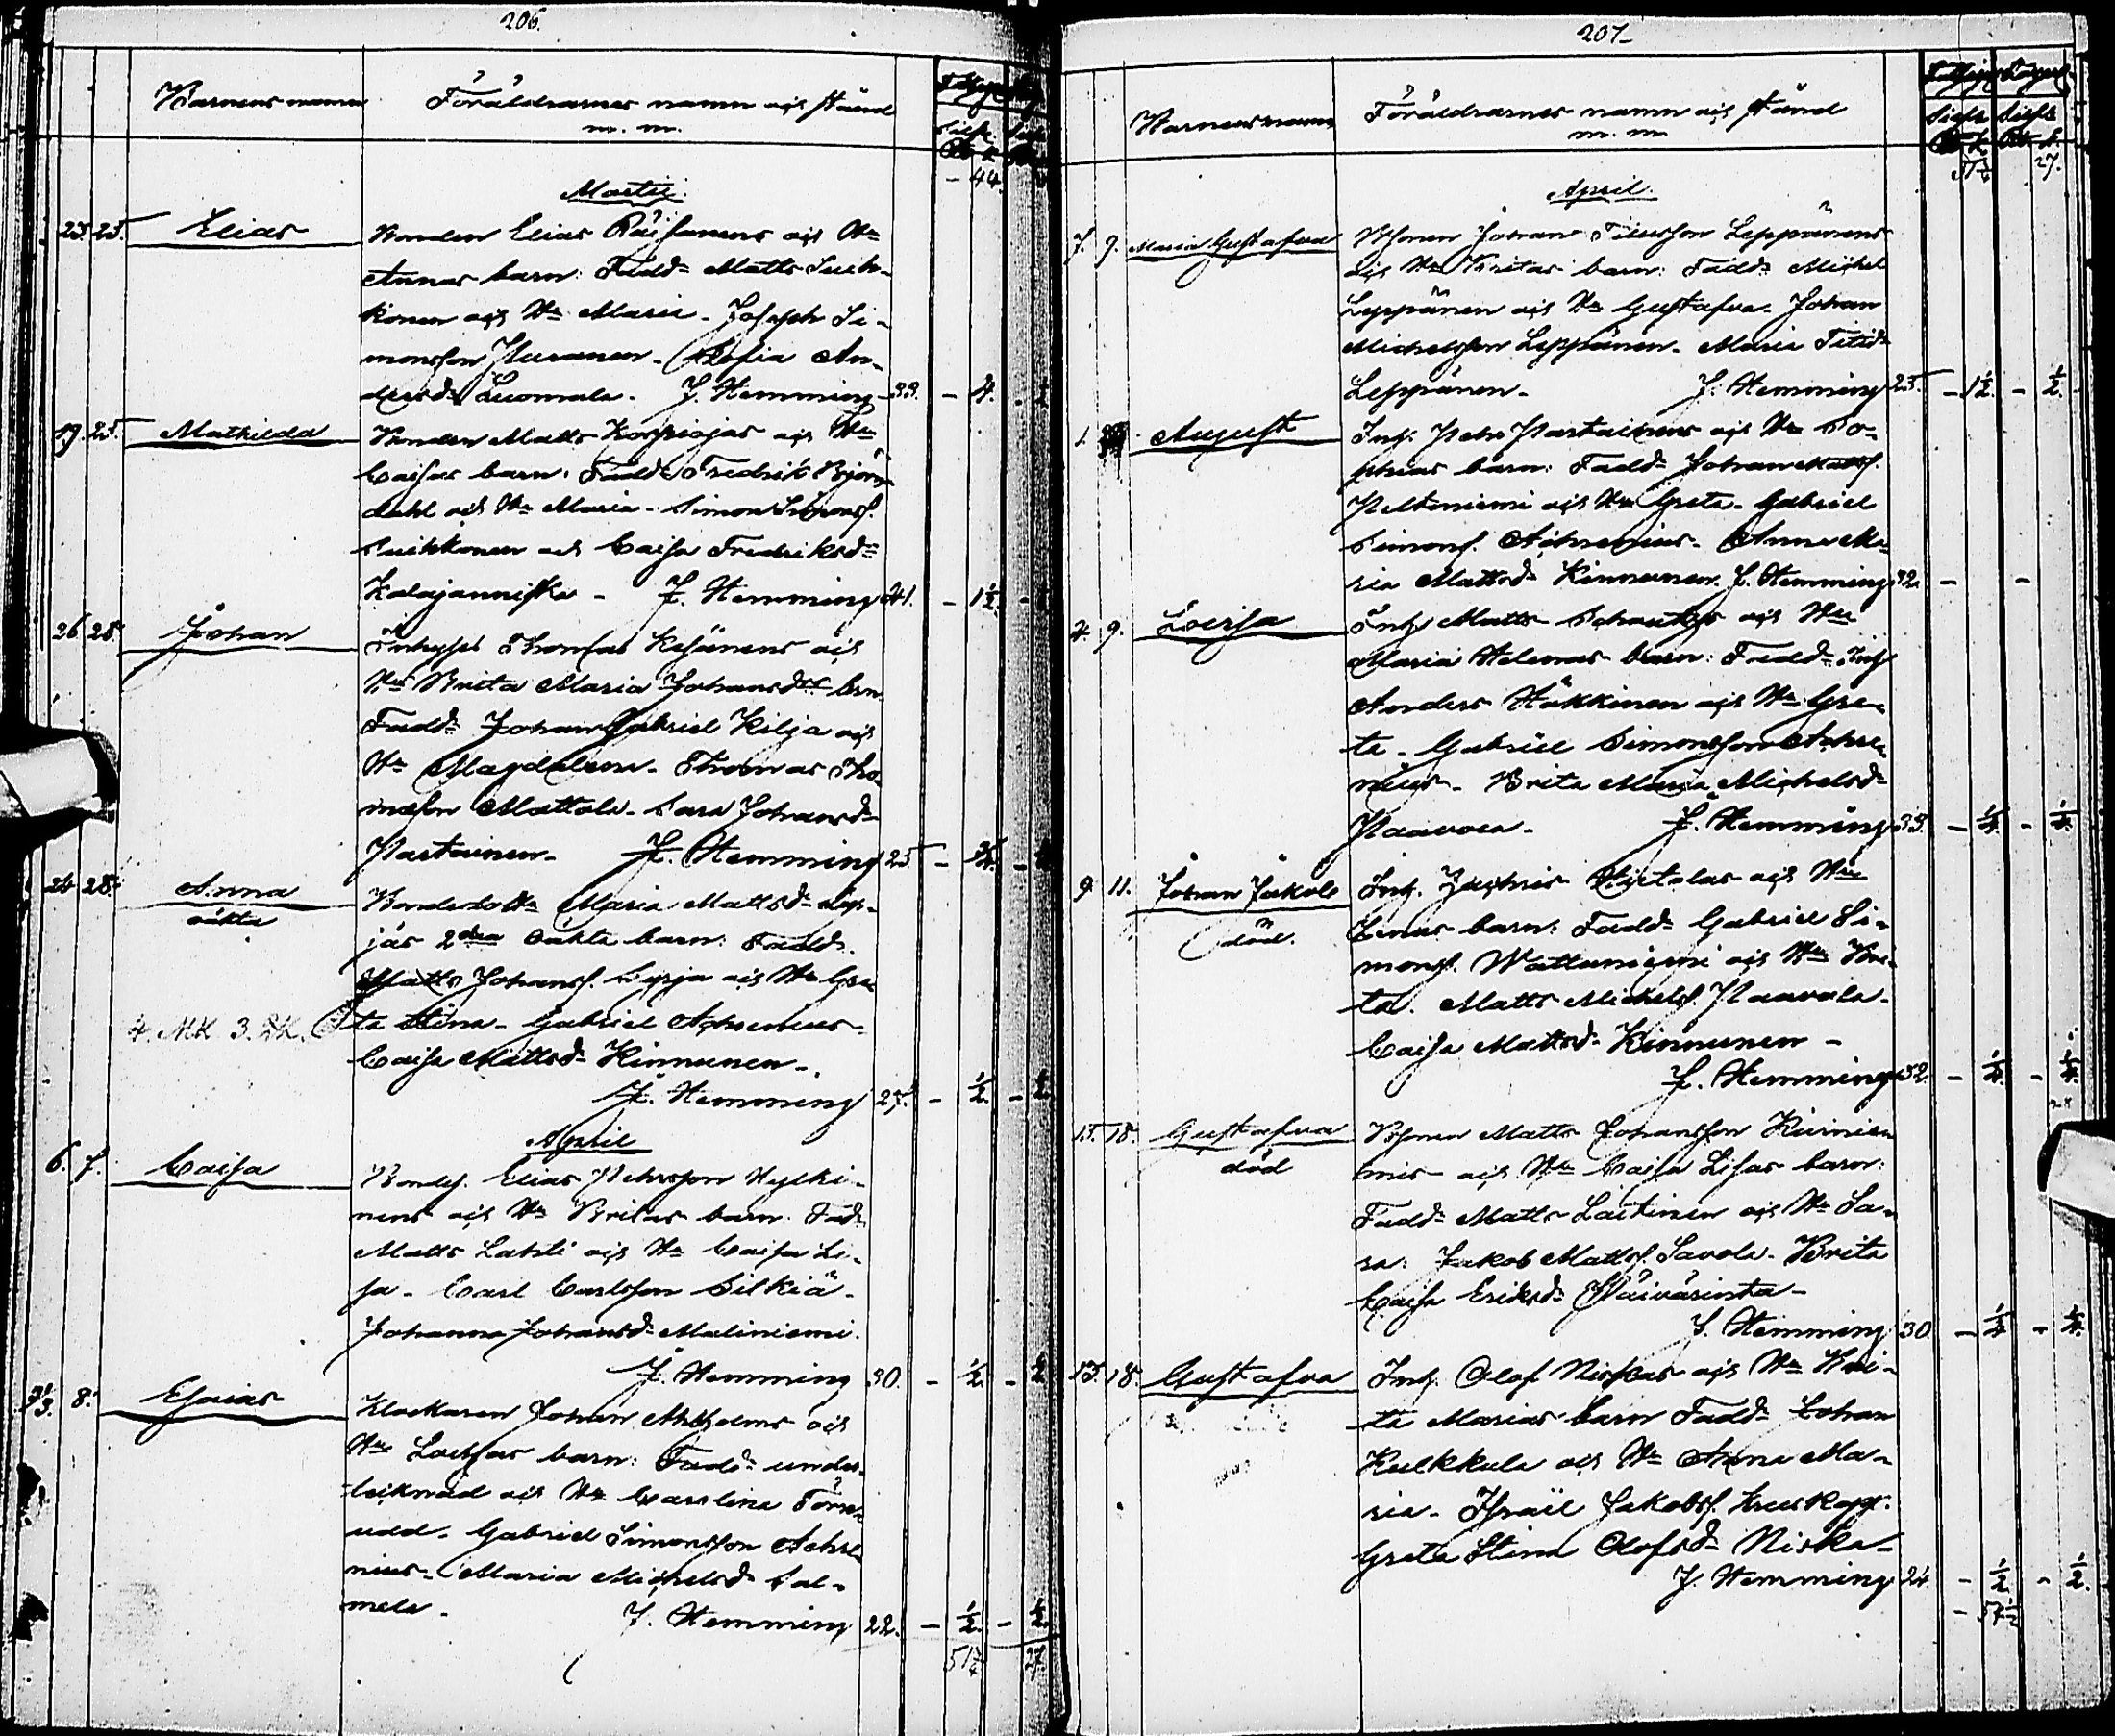 206.
Barnens namn Föräldrarnes namn och stånd
m. m.
Silfr.
- 44
Martii
23. 25. Elias Bonden Elias Räisänens och Hu
Annas barn: Fadd: Matts Suik-
konen och Hu Maria - Joseph Si-
monsson Huranen - Sofia An-
dersd: Luomala. J. Hemming 33. - 4.
19. 25. Mathilda Bonden Matts Korpiojas och Hu
Caisas barn: Fadd: Fredrik Björn-
dahl och Hu Maria - Simon Simonss.
Suikkonen och Caisa Fredriksd:
Kalajanniska - J. Hemming 41. - 1½
26. 28. Johan Inhyses Thomas Kesänens och
Hus Brita Maria Johansdrs brn
Fadd: Johan Gabriel Kilja och
Hu Magdalena - Thomas Tho-
masson Mattala - Sara Johansd:
Partainen - J. Hemming 25 - ¾
24 28. Anna Bondedottr Maria Mattsd:
oäkta jäs 2dra oäkta barn: Fadd:
Matts Johanss. och Hu Gre-
4. MK 3. Rk. ta Stina - Gabriel Achrenius -
Caisa Mattsd: Kinnunen -
J. Hemming 27. - ½ - ½
April
6. 7. Caisa Bondes. Elias Pehrsson Hylki-
nens och Hu Britas barn: Fad:
Matts Lahti och Hu Caisa Li-
sa - Carl Carlsson Silkiä -
Johanna Johansd: Maliniemi.
J. Hemming 30. - ½ - ½
31/3. 8. Esaias Klockaren Johan Ahlholms och
Hu Lovisas barn: Fadd: under-
tecknad och Hu Carolina Törn-
udd - Gabriel Simonsson Achre-
nius - Maria Michelsd: Sal-
mela - J. Hemming 22. - ½ - ½
51¼
207
Barnens namn Föräldrarnes namn och stånd
m. m
Silfr Silfr
51¼ 27.
April.
7. 9. Maria Gustafva Bsonen Johan Titusson Leppänens
och Hu Britas barn: Fadd: Michel
Leppänen och Hu Gustafva - Johan
Michelsson Leppänen - Maria Titid:
Leppänen - J. Hemming 25. - 1½ - ½
1. August Inh. Pehr Partainens och Hu So-
phias barn: Fadd: Johan Matss.
Peltoniemi och Hu Greta - Gabriel
Simons. Achrenius - Anna Ma-
ria Mattsd: Kinnunen. J. Hemming 32. - -
4. 9. Lovisa Inh Matts Schantzs och Hu
Maria Helenas barn: Fadd: Inh
Anders Häkkinen och Hu Gre-
ta - Gabriel Simonsson Achre-
nius - Brita Maria Michelsd:
Paavola - J. Hemming 39. - ¼ - ¼
9. 11. Johan Jakob Inh. Zachris Ahtolas och Hu
död. Lenas barn: Fadd: Gabriel Si-
mons. Wattuniemi och Hu Bri-
ta. Matts Michels. Paavola -
Caisa Mattsd: Kinnunen -
J. Hemming 32. - ¼ - ¼
15. 18. Gustafva Bsonen Matts Johansson Kurnie-
död mis och Hu Caisa Lisas barn:
Fadd: Matts Laitinen och Hu Sa-
ra: Jakob Matts. Savola - Brita
Caisa Eriksd: Päivärinta -
J. Hemming 30. - ¼ - ¼
15. 18. Gustafva Inh. Olof Niskas och Hu Bri-
ta Marias barn Fadd: Johan
Kulkkula och Hu Anna Ma-
ria - Israel Jakobss. Kruskopf.
Greta Stina Olofsd: Niska -
J. Hemming 24 - ½ - ½
- 54½